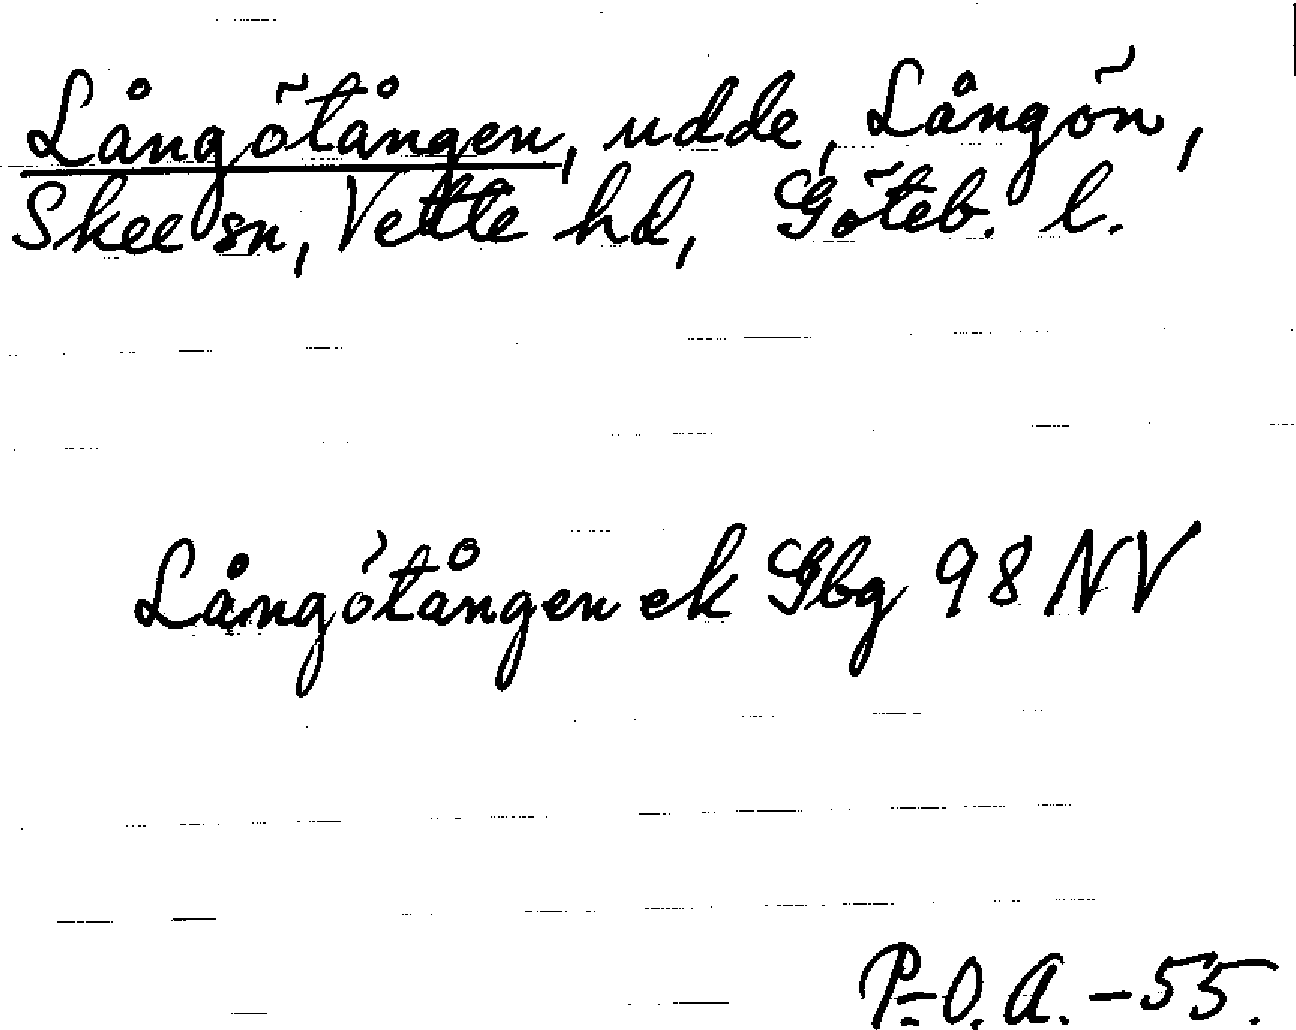 Långötången, udde, Långön,
Skee sn, Vette hd, Göteb. l.
Långötången ek Gbg 98 NV
P.-O. A. -55.